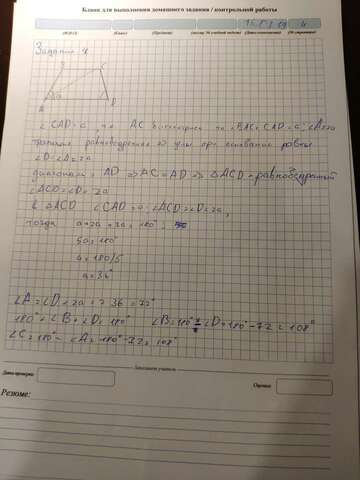 Бланк для выполнения домашнего задания / контрольной работы
(Ф.И.О.) (Класс) (Предмет) (номер № учебной недели) (Дата выполнения) (№ страницы)
Задание
B C
A D
∠CAD = a, AC ∠BAC = CAD = a
трапеция равнобедренная углы при основании равны
∠D = ∠A = 2a
диагональ = AD ⇒ AC = AD ⇒ △ACD - равнобедренный
∠ACD = ∠D = 2a
В △ACD ∠CAD = a; ∠ACD = ∠D = 2a,
тогда a + 2a + 2a = 180°
5a = 180°
a = 180/5
a = 36°
∠A = ∠D = 2a = 2·36 = 72°
180° = ∠B + ∠D = 180° ∠B = 180° - ∠D = 180° - 72 = 108°
∠C = 180° - ∠A = 180° - 72 = 108°
Заполняет учитель
Дата проверки: Оценка:
Резюме: